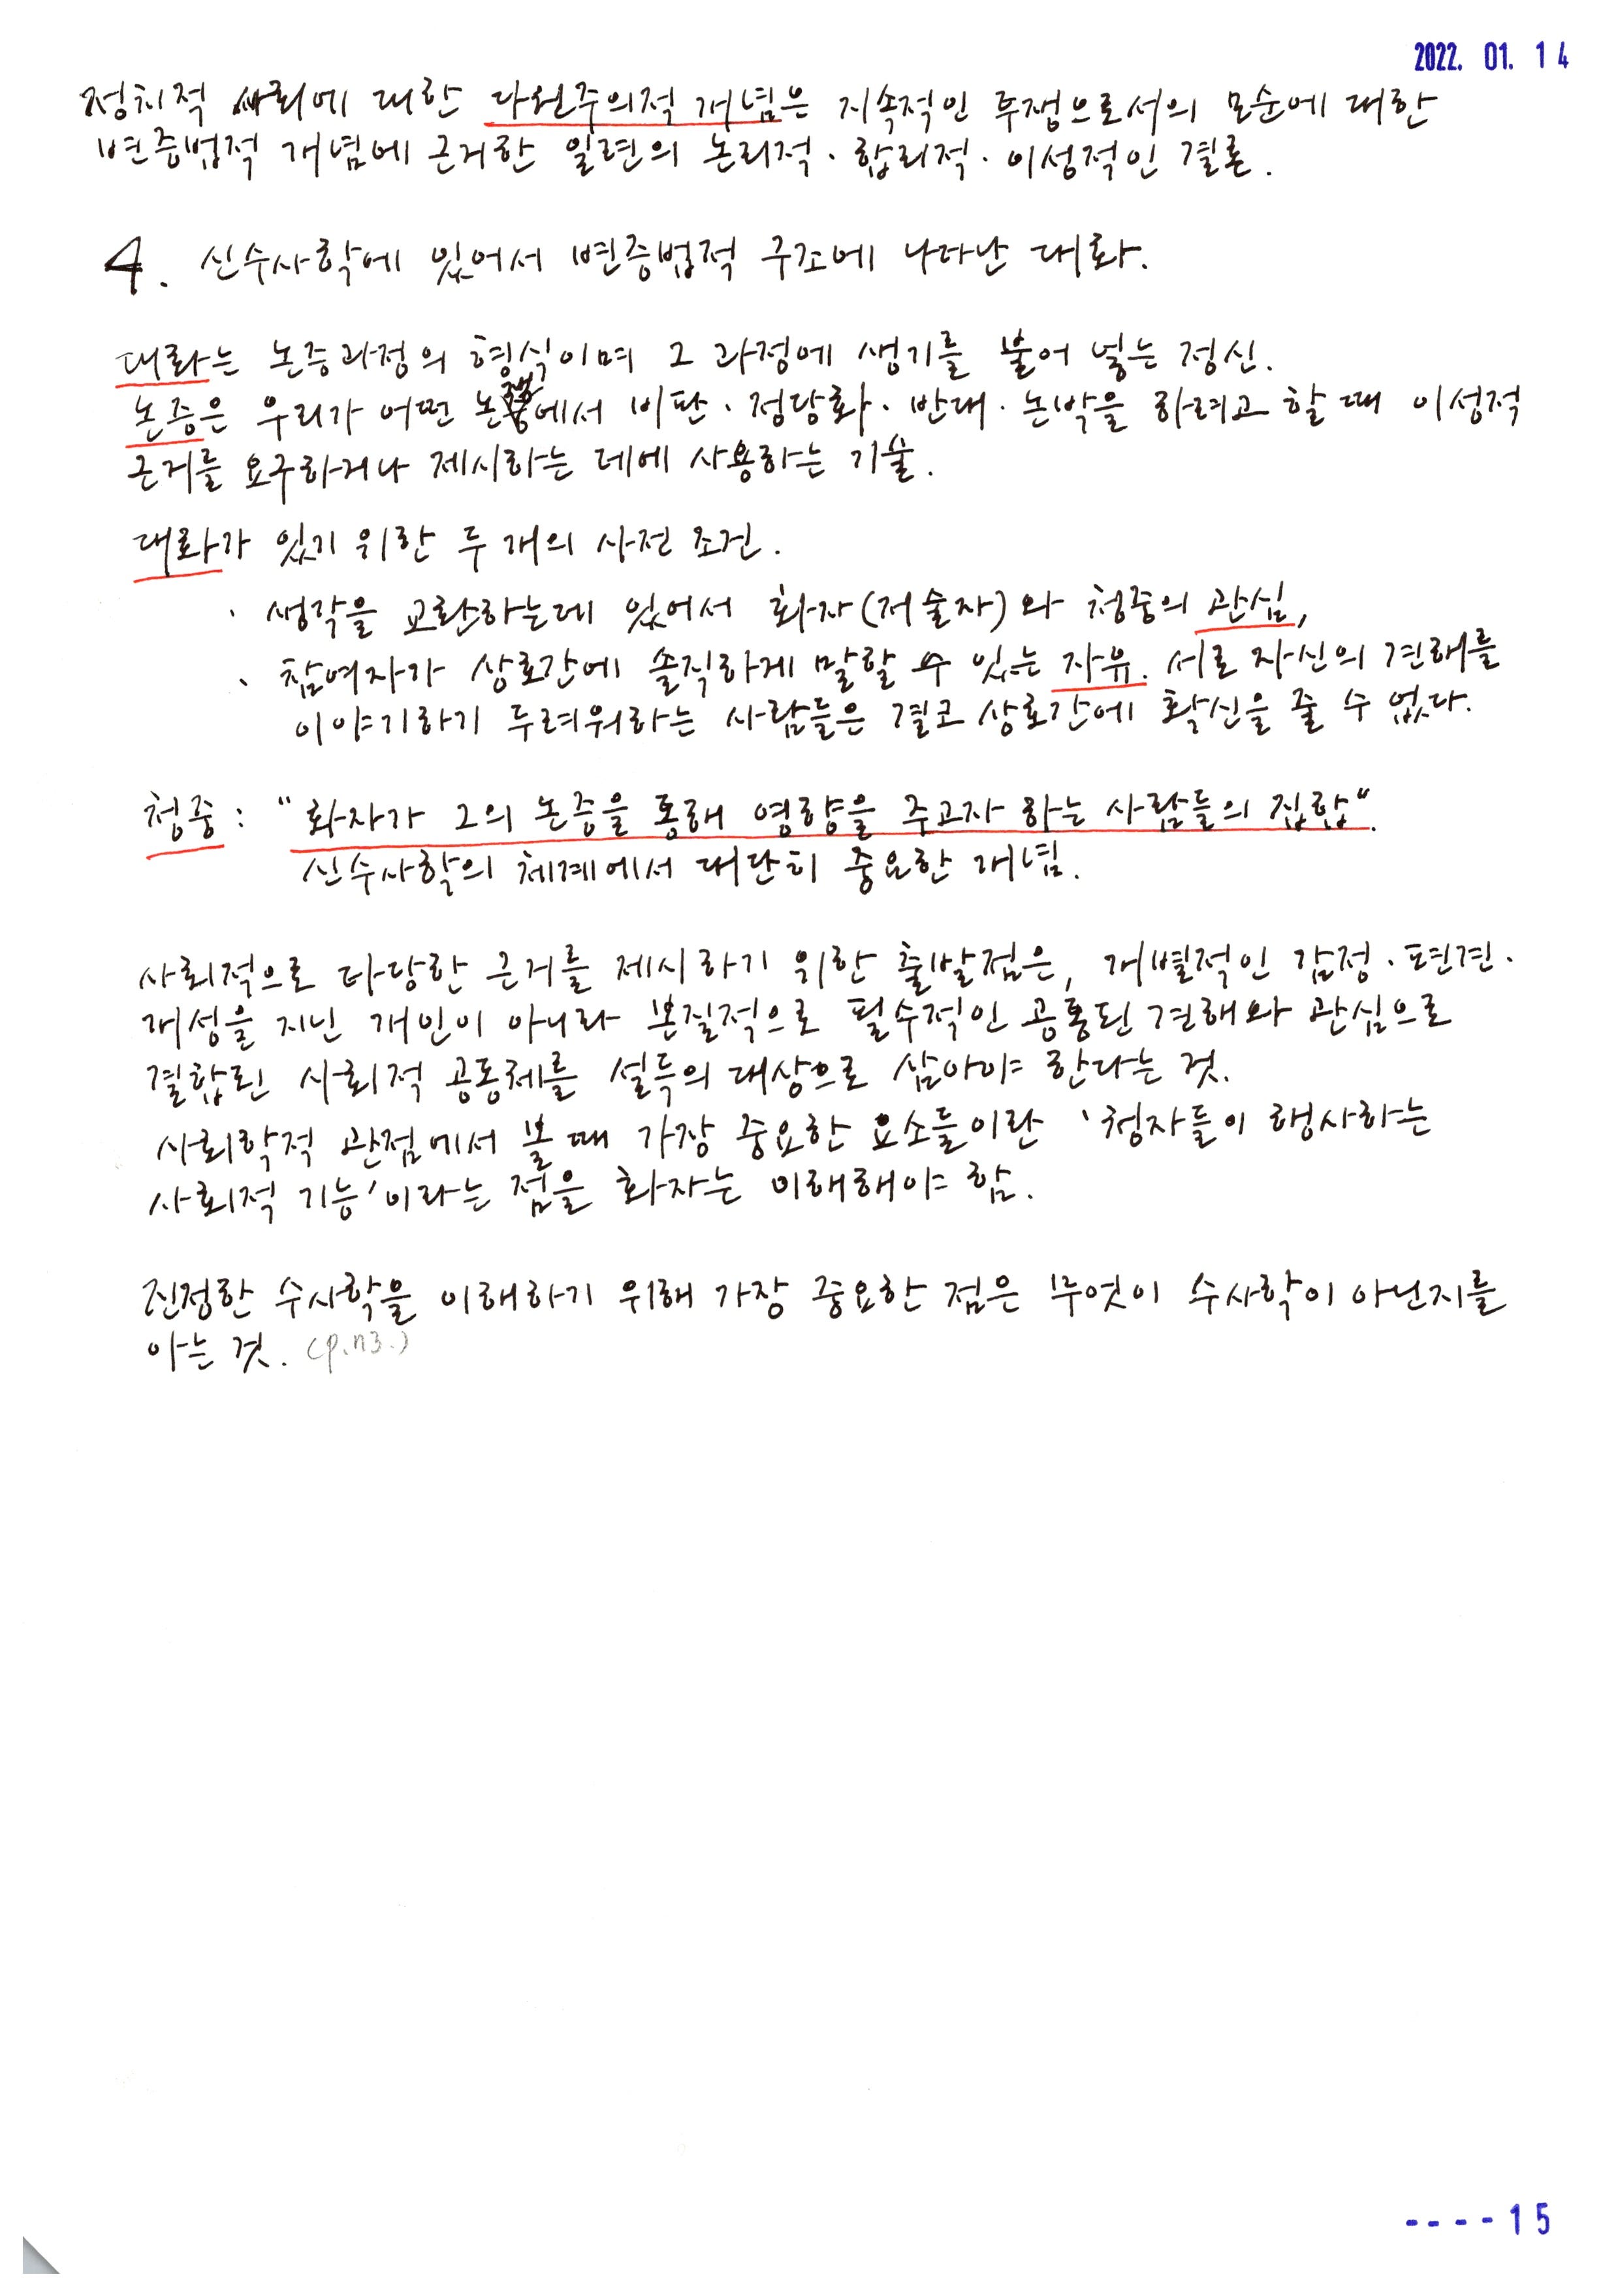 2022. 01. 14
정치적 사회에 대한 다원주의적 개념은 지속적인 투쟁으로서의 모순에 대한
변증법적 개념에 근거한 일련의 논리적·합리적·이성적인 결론.
4. 신수사학에 있어서 변증법적 구조에 나타난 대화.
대화는 논증과정의 형식이며 그 과정에 생기를 불어 넣는 정신.
논증은 우리가 어떤 논쟁에서 비판·정당화·반대·논박을 하려고 할 때 이성적
근거를 요구하거나 제시하는 데에 사용하는 기술.
대화가 있기 위한 두 개의 사전 조건.
· 생각을 교환하는데 있어서 화자(저술자)와 청중의 관심,
· 참여자가 상호간에 솔직하게 말할 수 있는 자유. 서로 자신의 견해를
이야기하기 두려워하는 사람들은 결코 상호간에 확신을 줄 수 없다.
청중 : "화자가 그의 논증을 통해 영향을 주고자 하는 사람들의 집합".
신수사학의 체계에서 대단히 중요한 개념.
사회적으로 타당한 근거를 제시하기 위한 출발점은, 개별적인 감정·편견·
개성을 지닌 개인이 아니라 본질적으로 필수적인 공통된 견해와 관심으로
결합된 사회적 공동체를 설득의 대상으로 삼아야 한다는 것.
사회학적 관점에서 볼 때 가장 중요한 요소들이란 '청자들이 행사하는
사회적 기능'이라는 점을 화자는 이해해야 함.
진정한 수사학을 이해하기 위해 가장 중요한 점은 무엇이 수사학이 아닌지를
아는 것. (p.113.)
----15